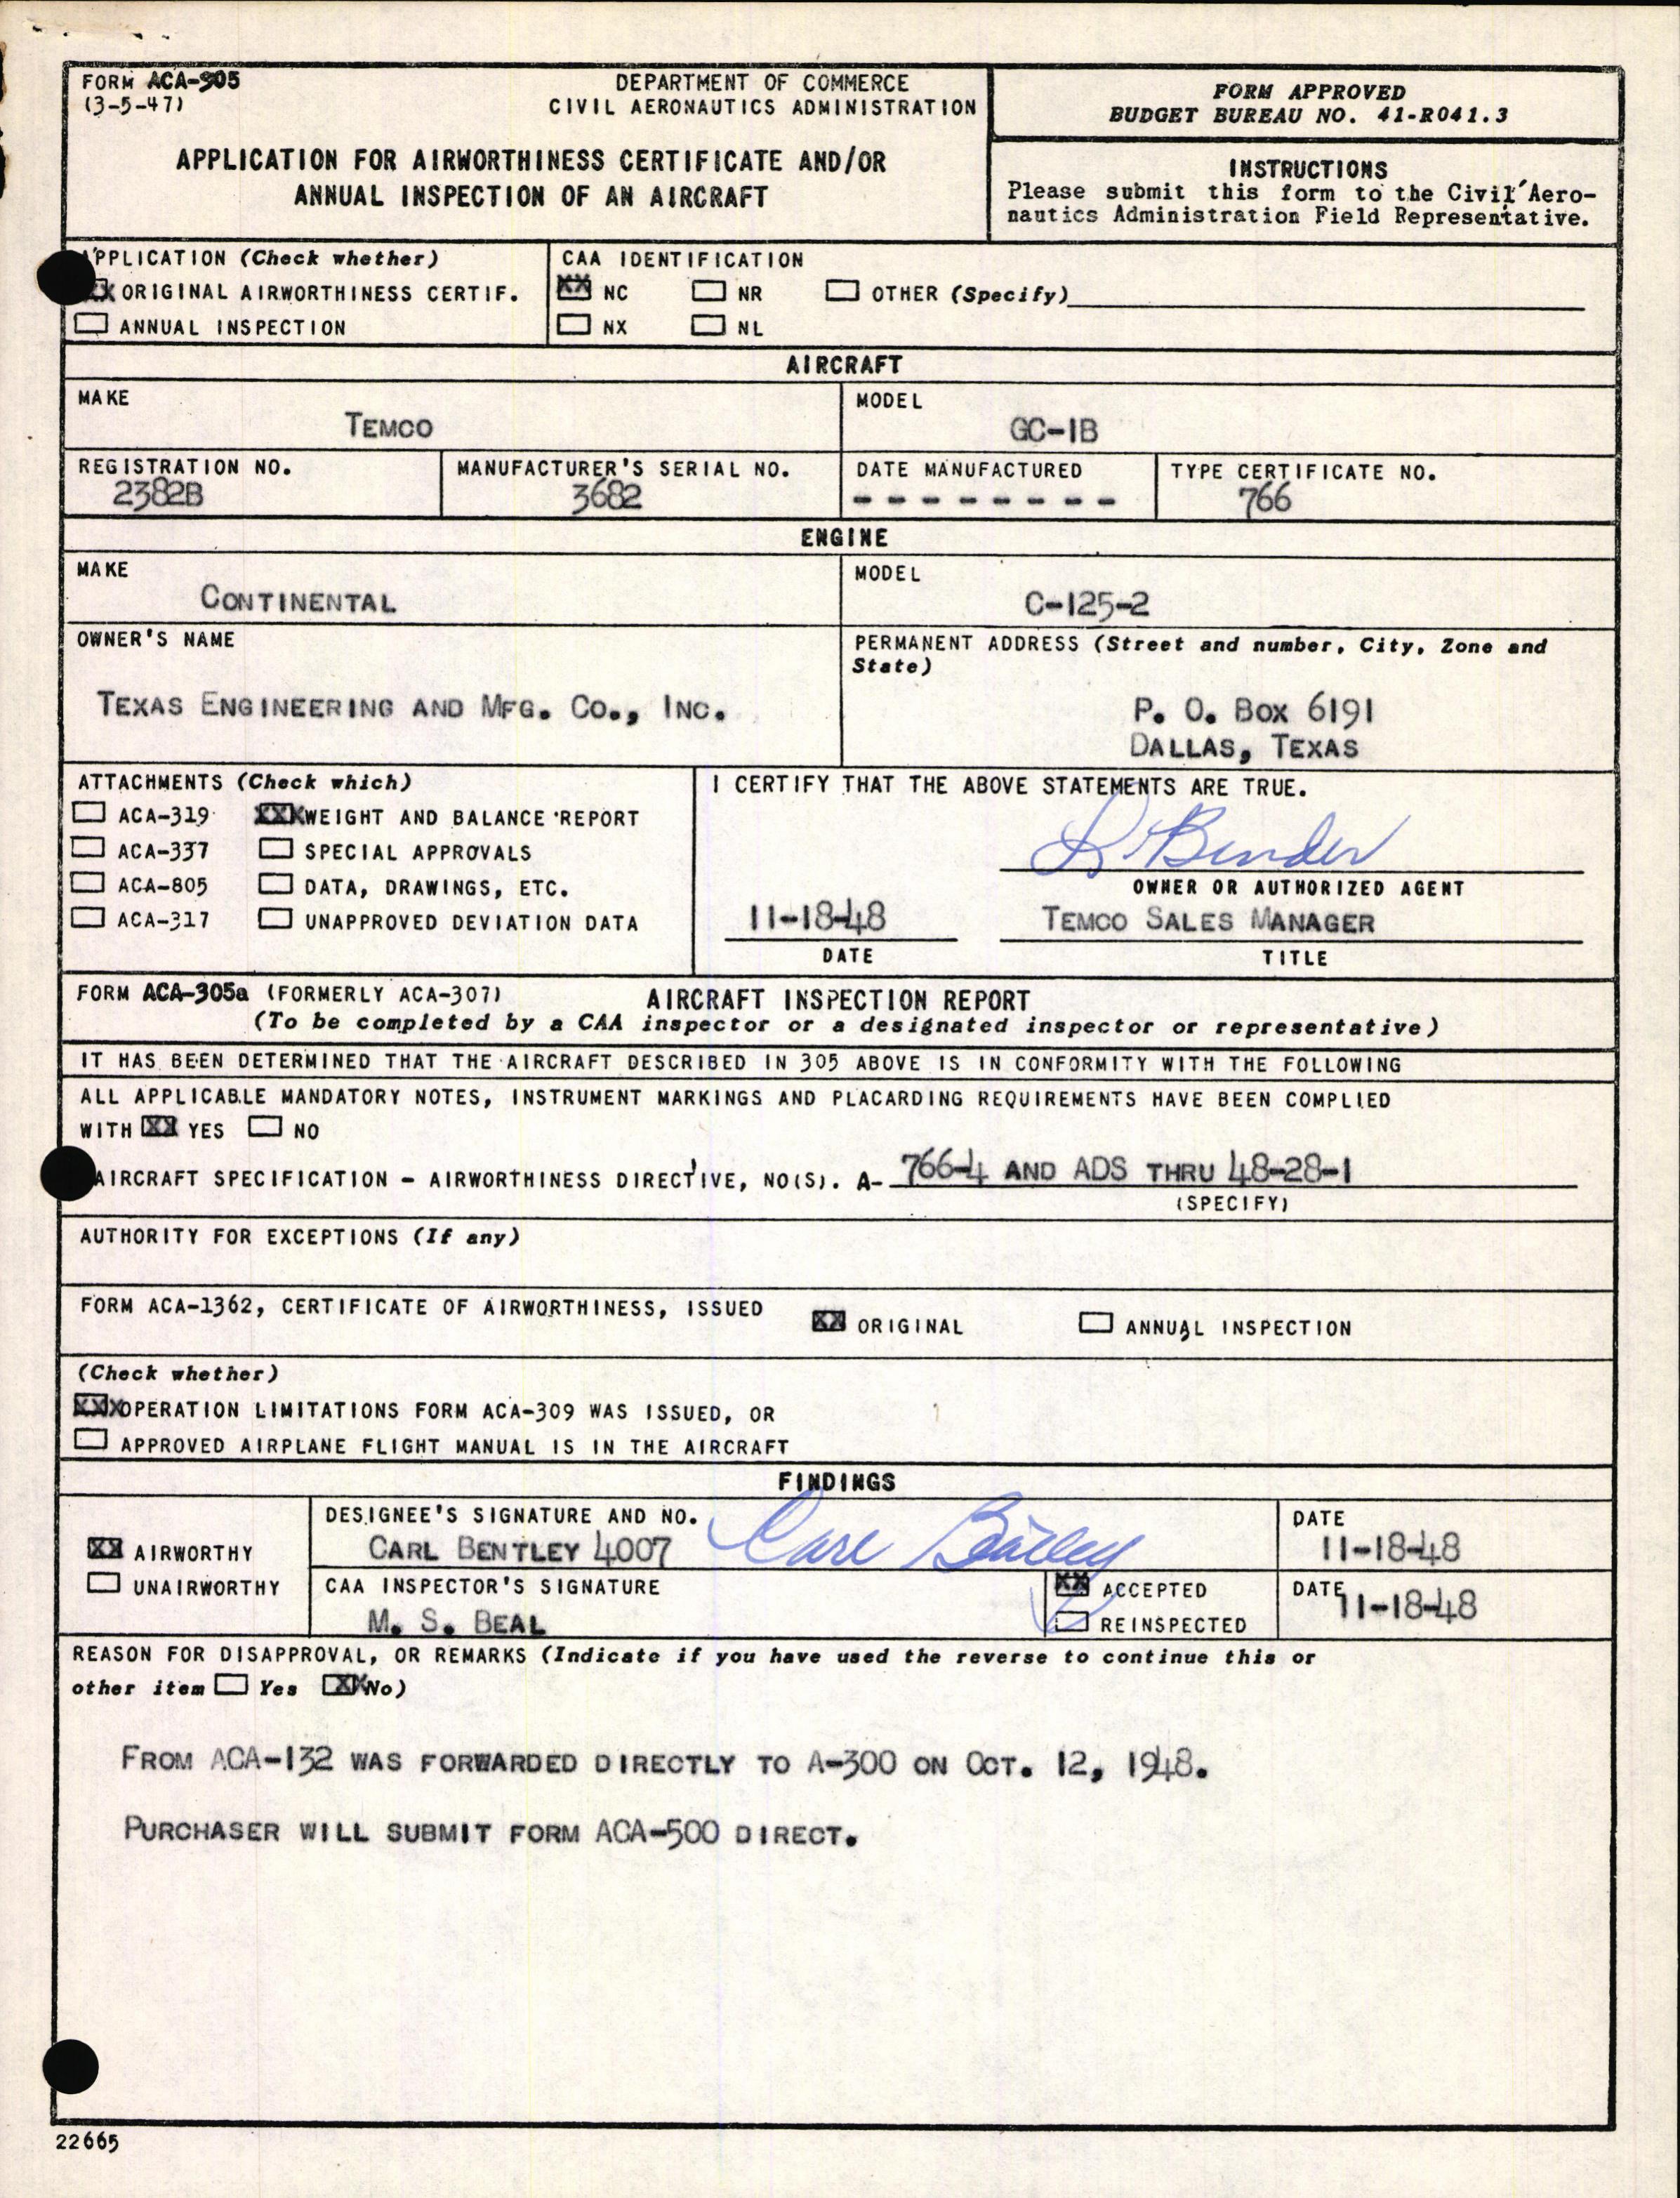 FORM ACA-305
(3-5-47)
DEPARTMENT OF COMMERCE
CIVIL AERONAUTICS ADMINISTRATION
APPLICATION FOR AIRWORTHINESS CERTIFICATE AND/OR
ANNUAL INSPECTION OF AN AIRCRAFT
FORM APPROVED
BUDGET BUREAU NO. 41-R041.3
INSTRUCTIONS
Please submit this form to the Civil Aero-
nautics Administration Field Representative.
APPLICATION (Check whether)
XX ORIGINAL AIRWORTHINESS CERTIF.
ANNUAL INSPECTION
CAA IDENTIFICATION
XX NC NR OTHER (Specify)
NX NL
AIRCRAFT
MAKE
TEMCO
MODEL
GC-1B
REGISTRATION NO.
2382B
MANUFACTURER'S SERIAL NO.
3682
DATE MANUFACTURED
- - - - - - - -
TYPE CERTIFICATE NO.
766
ENGINE
MAKE
CONTINENTAL
MODEL
C-125-2
OWNER'S NAME
TEXAS ENGINEERING AND MFG. CO., INC.
PERMANENT ADDRESS (Street and number, City, Zone and
State)
P. O. BOX 6191
DALLAS, TEXAS
ATTACHMENTS (Check which)
ACA-319 XXX WEIGHT AND BALANCE REPORT
ACA-337 SPECIAL APPROVALS
ACA-805 DATA, DRAWINGS, ETC.
ACA-317 UNAPPROVED DEVIATION DATA
I CERTIFY THAT THE ABOVE STATEMENTS ARE TRUE.
Bender
OWNER OR AUTHORIZED AGENT
11-18-48
DATE
TEMCO SALES MANAGER
TITLE
FORM ACA-305a (FORMERLY ACA-307) AIRCRAFT INSPECTION REPORT
(To be completed by a CAA inspector or a designated inspector or representative)
IT HAS BEEN DETERMINED THAT THE AIRCRAFT DESCRIBED IN 305 ABOVE IS IN CONFORMITY WITH THE FOLLOWING
ALL APPLICABLE MANDATORY NOTES, INSTRUMENT MARKINGS AND PLACARDING REQUIREMENTS HAVE BEEN COMPLIED
WITH XX YES NO
AIRCRAFT SPECIFICATION - AIRWORTHINESS DIRECTIVE, NO(S). A- 766-4 AND ADS THRU 48-28-1
(SPECIFY)
AUTHORITY FOR EXCEPTIONS (If any)
FORM ACA-1362, CERTIFICATE OF AIRWORTHINESS, ISSUED XX ORIGINAL ANNUAL INSPECTION
(Check whether)
XXX OPERATION LIMITATIONS FORM ACA-309 WAS ISSUED, OR
APPROVED AIRPLANE FLIGHT MANUAL IS IN THE AIRCRAFT
FINDINGS
XX AIRWORTHY
UNAIRWORTHY
DESIGNEE'S SIGNATURE AND NO.
CARL BENTLEY 4007 Carl
DATE
11-18-48
CAA INSPECTOR'S SIGNATURE
M. S. BEAL
XX ACCEPTED
REINSPECTED
DATE
11-18-48
REASON FOR DISAPPROVAL, OR REMARKS (Indicate if you have used the reverse to continue this or
other item Yes XX No)
FROM ACA-132 WAS FORWARDED DIRECTLY TO A-300 ON OCT. 12, 1948.
PURCHASER WILL SUBMIT FORM ACA-500 DIRECT.
22665